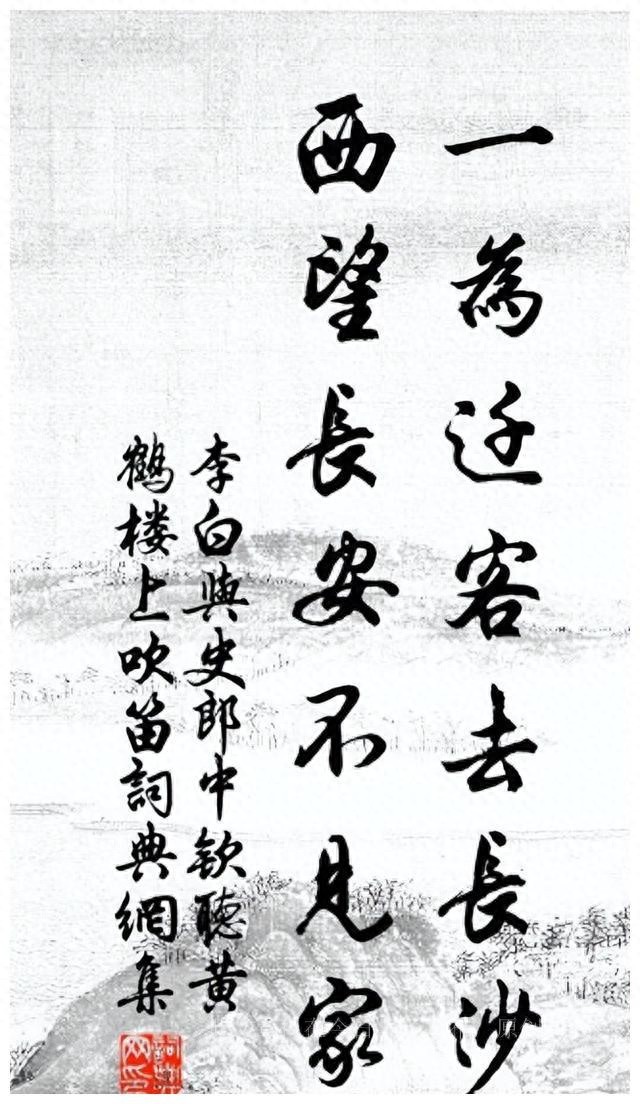 一為迁客去長沙
西望長安不見家
李白與史郎中欽聽黄
鶴楼上吹笛詞典網集